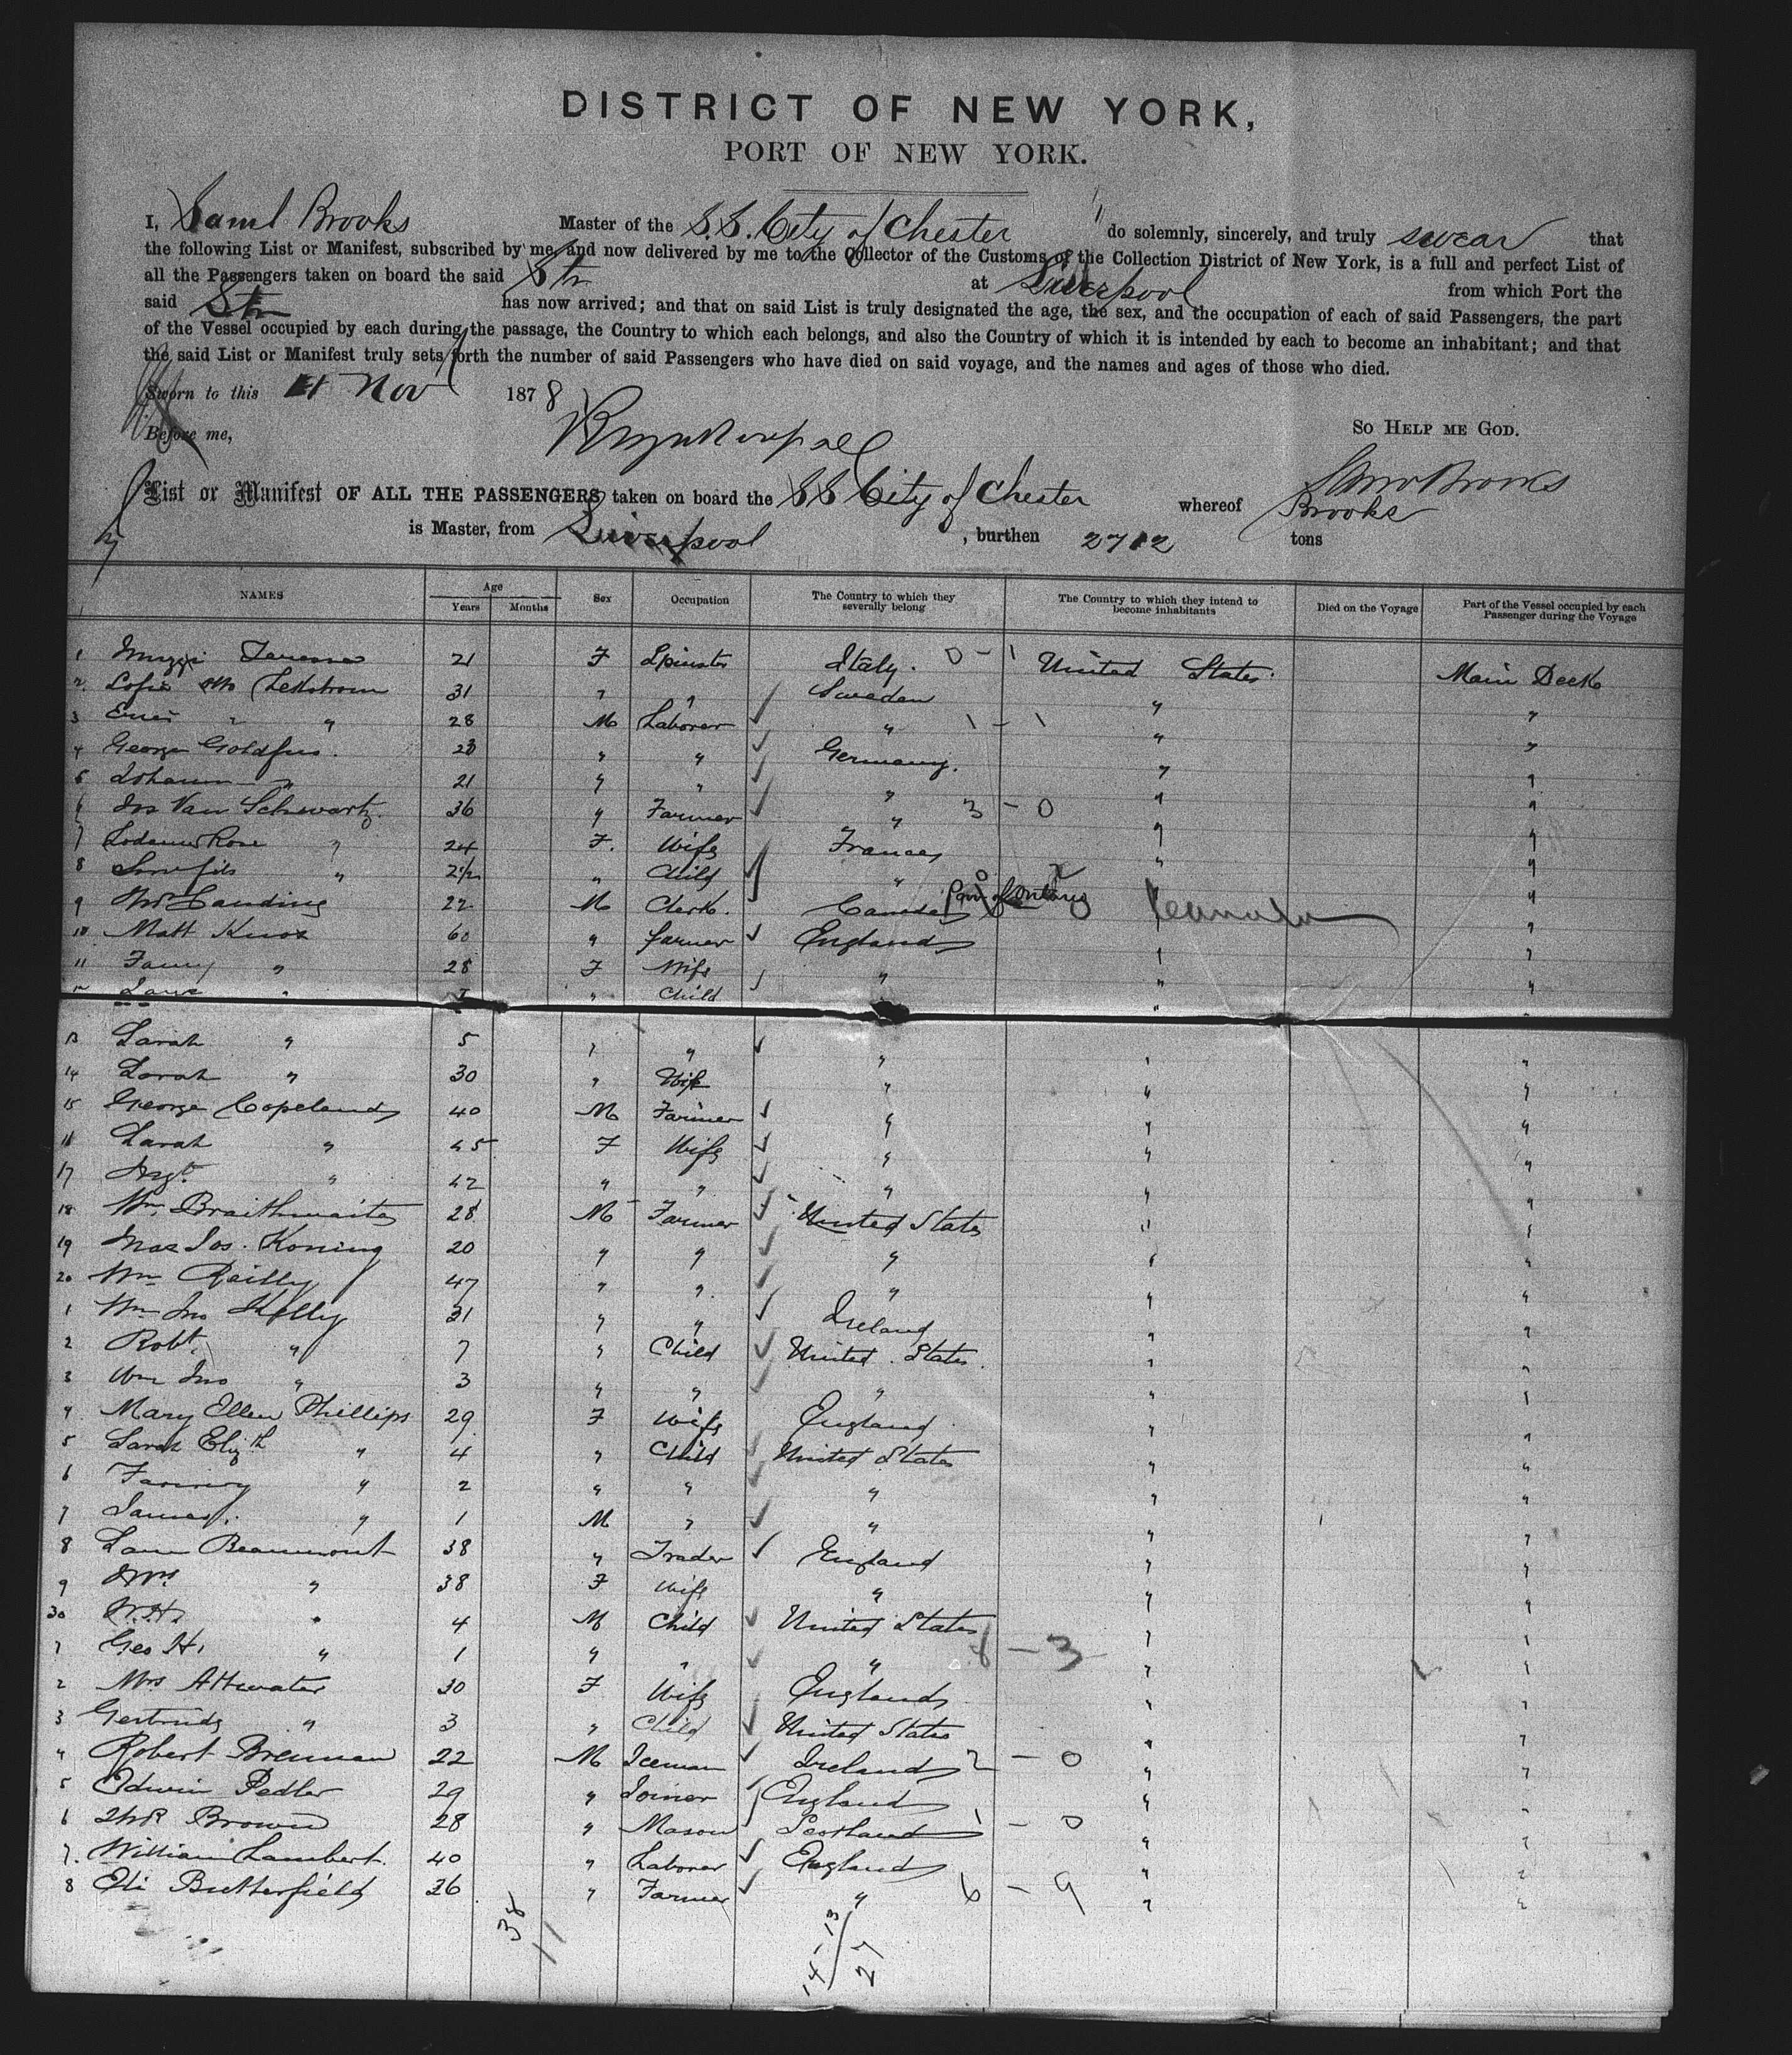 DISTRICT OF NEW YORK,
PORT OF NEW YORK.
I, Saml Brooks Master of the S.S. City of Chester do solemnly, sincerely, and truly swear that
the following List or Manifest, subscribed by me, and now delivered by me to the Collector of the Customs of the Collection District of New York, is a full and perfect List of
all the Passengers taken on board the said Str at Liverpool from which Port the
said Str has now arrived; and that on said List is truly designated the age, the sex, and the occupation of each of said Passengers, the part
of the Vessel occupied by each during the passage, the Country to which each belongs, and also the Country of which it is intended by each to become an inhabitant; and that
the said List or Manifest truly sets forth the number of said Passengers who have died on said voyage, and the names and ages of those who died.
Sworn to this Nov 1878
Before me, So Help me God.
Saml Brooks
List or Manifest OF ALL THE PASSENGERS taken on board the SS City of Chester whereof Brooks
is Master, from Liverpool, burthen 2712 tons
NAMES Age Years Months Sex Occupation The Country to which they severally belong The Country to which they intend to become inhabitants Died on the Voyage Part of the Vessel occupied by each Passenger during the Voyage
1 21 F Spinster Italy. 0-1 United States Main Deck
2 31 " " Sweden " "
3 " " 28 M Laborer " 1-1 " "
4 George Goldfus. " " Germany. " "
5 Johann " 21 " " " " "
6 Van Schwartz. 36 " Farmer " 3-0 " "
7 Rose " 24 F. Wife France " "
8 " 2½ " Child " " "
9 22 M Clerk. Canada Canada "
10 Matt Knox 60 " farmer England " "
11 Fanny " 28 F Wife " " "
" " Child " "
13 Sarah " 5 " " " " "
14 Sarah " 30 " Wife " " "
15 George Copeland 40 M Farmer " " "
16 Sarah " 45 F Wife " " "
17 " 42 " " " " "
18 Wm. Braithwaite 28 M Farmer United States " "
19 Jos. Koning 20 " " " " "
20 Wm Reilly 47 " " " " "
1 Wm Jno Kelly 31 " " Ireland " "
2 Robt. " 7 " Child United States. " "
3 Wm Jno " 3 " " " " "
4 Mary Ellen Phillips 29 F Wife England " "
5 Sarah Elizth " 4 " Child United States " "
6 Fanny " 2 " " " " "
7 James. " 1 M " " " "
8 Beaumont 38 " Trader England " "
9 Mrs. " 38 F Wife " " "
30 W.H. " 4 M Child United States " "
1 Geo H. " 1 " " " 8-3 " "
2 Mrs Attwater 30 F Wife England " "
3 Gertrude " 3 " Child United States " "
4 Robert Brennan 22 M Iceman Ireland 2-0 " "
5 Edwin Pedler 29 " Joiner England " "
6 Brown 28 " Mason Scotland 1-0 " "
7. William Lambert. 40 " Laborer England " "
8 Eli Butterfield 26 " Farmer " 6-9 " "
38
11
14-13
27